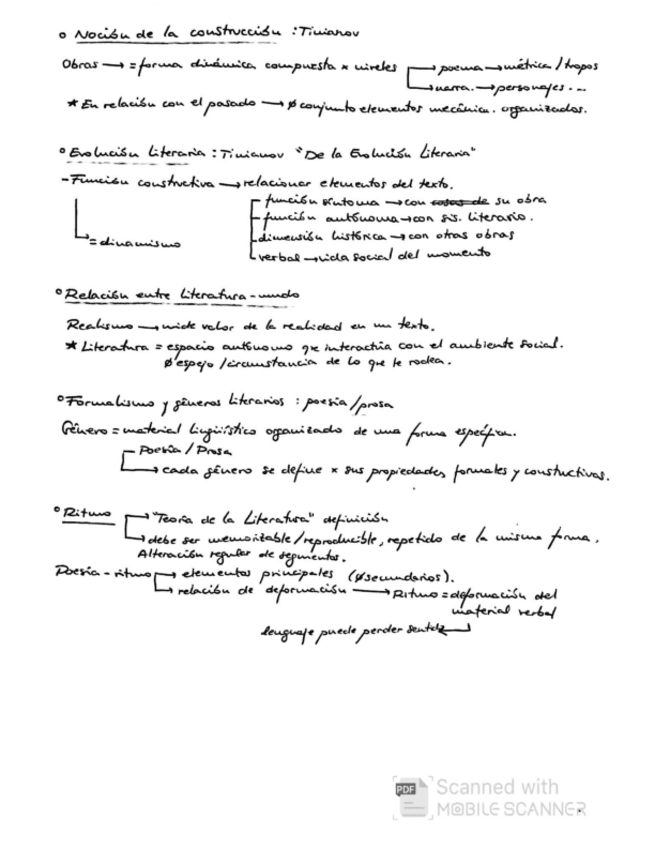 ° Noción de la construcción : Tinianov
Obras → = forma dinámica compuesta x niveles → poema → métrica / tropos
→ narra. → personajes ...
* En relación con el pasado → Ø conjunto elementos mecánica. organizados.
° Evolución Literaria : Tinianov "De la Evolución Literaria"
- Función constructiva → relacionar elementos del texto.
función síntoma → con cosas de su obra
función autónoma → con sis. literario.
= dinamismo
dimensión histórica → con otras obras
verbal → vida social del momento
° Relación entre literatura - mundo
Realismo → mide valor de la realidad en un texto.
* Literatura = espacio autónomo qe interactúa con el ambiente social.
Ø espejo / circunstancia de lo que le rodea.
° Formalismo y géneros literarios : poesía / prosa
Género = material lingüístico organizado de una forma específica.
Poesía / Prosa
→ cada género se define x sus propiedades formales y constructivas.
° Ritmo → "Teoría de la Literatura" definición
→ debe ser memorizable / reproducible, repetido de la misma forma.
Alteración regular de segmentos.
Poesía - ritmo → elementos principales (Ø secundarios).
→ relación de deformación → Ritmo = deformación del
material verbal
lenguaje puede perder sentido
PDF Scanned with
MOBILE SCANNER